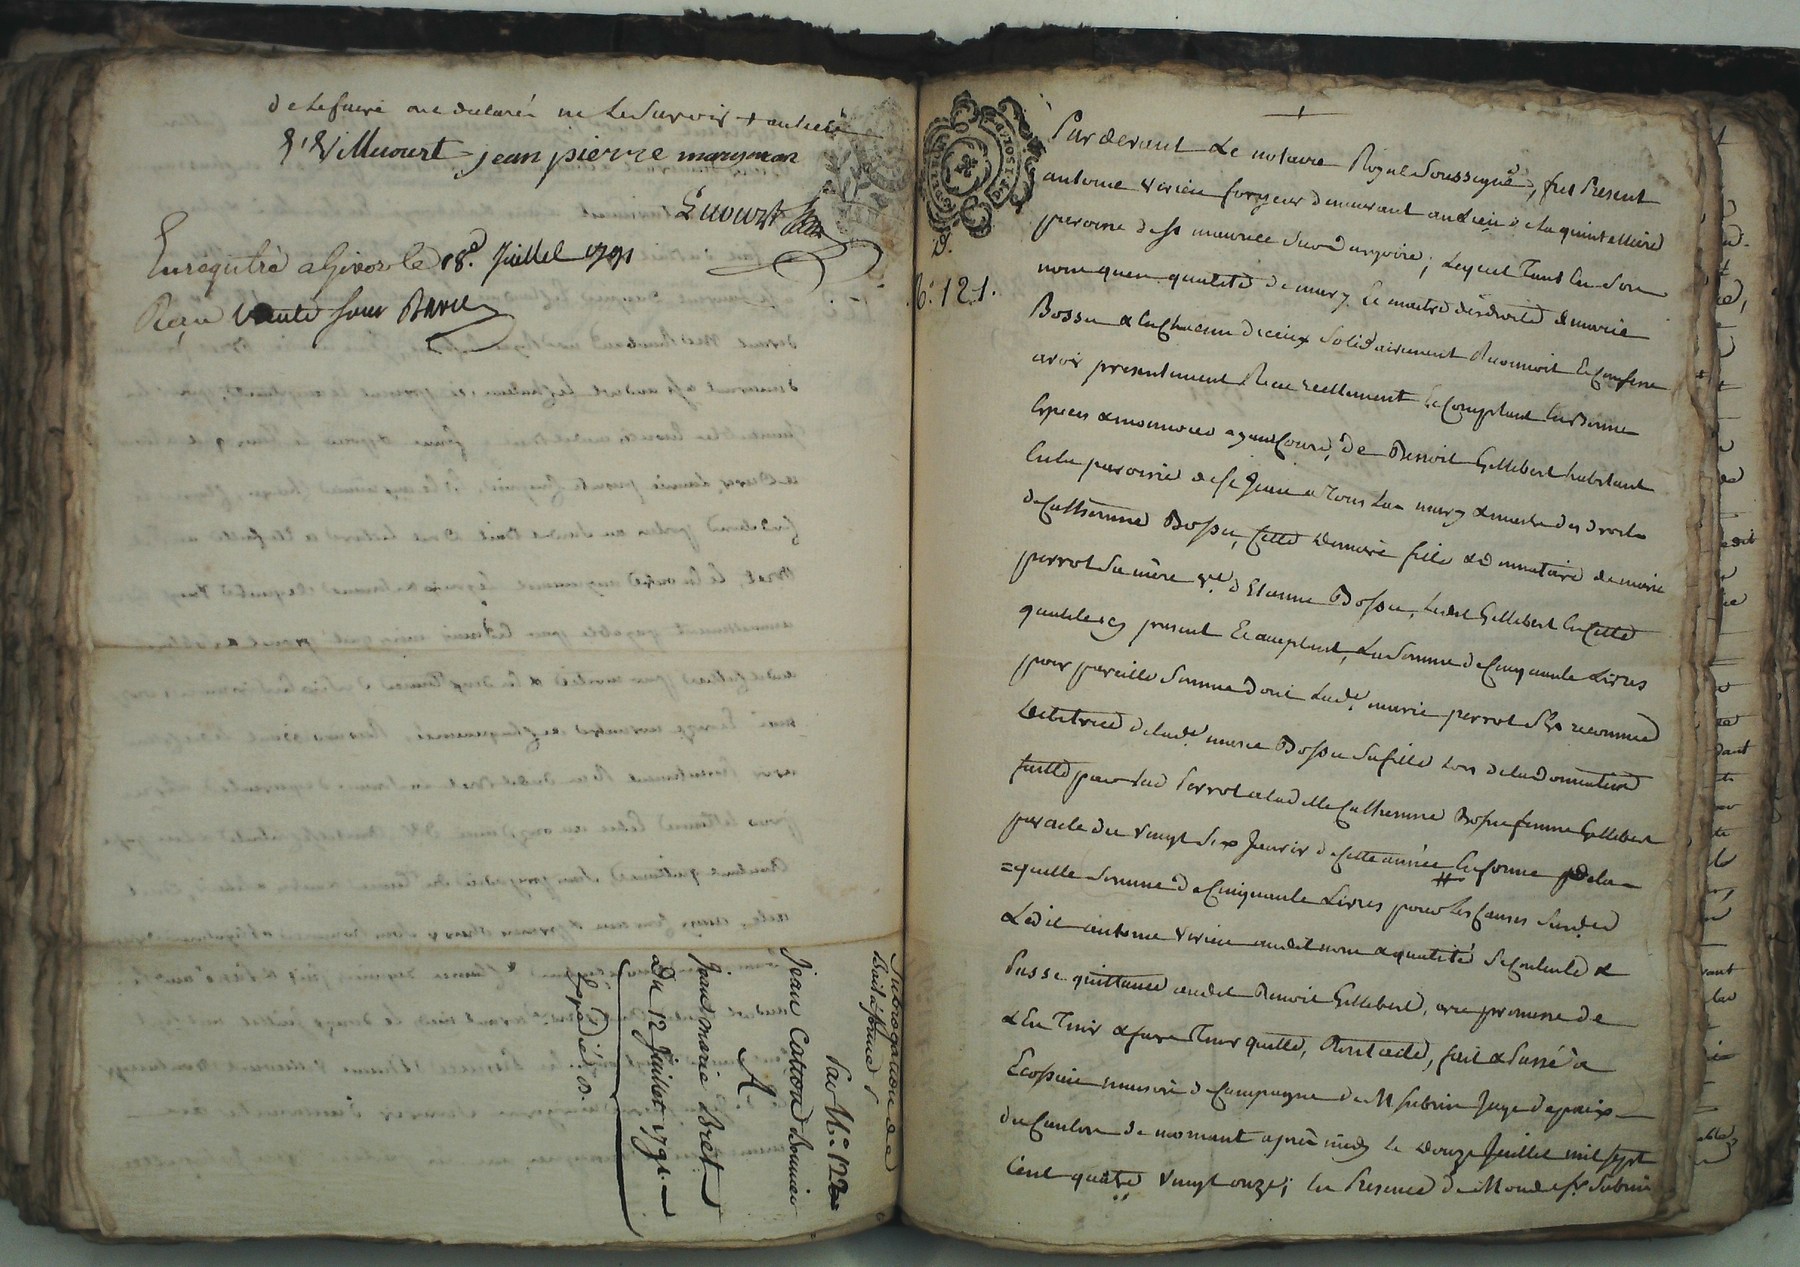 de Lefaire ont declaré ne Le Savoir
Villecourt jean pierre
Enregistré a Givors le 18.e Juillet 1791
Reçu
Subrogation de
Bail a ferme
Par M.e
jean Caton
A
jean marie Bret
Du 12 Juillet 1791.
Expédié.
N.o 121.
Pardevant Le notaire Royal Soussigné, fut Present
antoine Verrier demeurant au Lieu de la
paroisse de St maurice Sur Dargoire; Lequel Tant En Son
nom quen qualité de mary Et maitre des droits de marie
Bossu & En Chacun diceux Solidairement Reconnoit Et Confesse
avoir presentement Reçu reellement Et Comptant En Bonne
Espèces & monnoies ayant Cours, de Benoit Gillibert habitant
En la paroisse de St Jean a Tous Las mary & maitre des droits
de Catherine Bossu, Cette derniere fille & Donnataire de marie
perrot Sa mère v.e d'Etienne Bossu, Ledit Gillibert En Cette
qualité icy present Et acceptant, La Somme de Cinquante Livres
pour pareille Somme dont Lad.e marie perrot reconnue
debitrice de lad.e marie Bossu Sa fille Lors de la Donnation
faitte par lad Perrot a lad Catherine Bossu femme Gillibert
par acte du vingt Six Janvier de Cette année En forme de la
=quelle Somme de Cinquante Livres pour les Causes
Ledit antoine Verrier audit nom & qualité Se Contente &
Passe quittance audit Benoit Gillibert, avec promesse de
L'En Tenir & faire Tenir quitte, Dont acte, fait & Passé a
maison de Campagne de M Subrin Juge de paix
du Canton de mornant après midy Le douze Juillet mil Sept
Cent quatre vingt onze; En Presence de Subrin